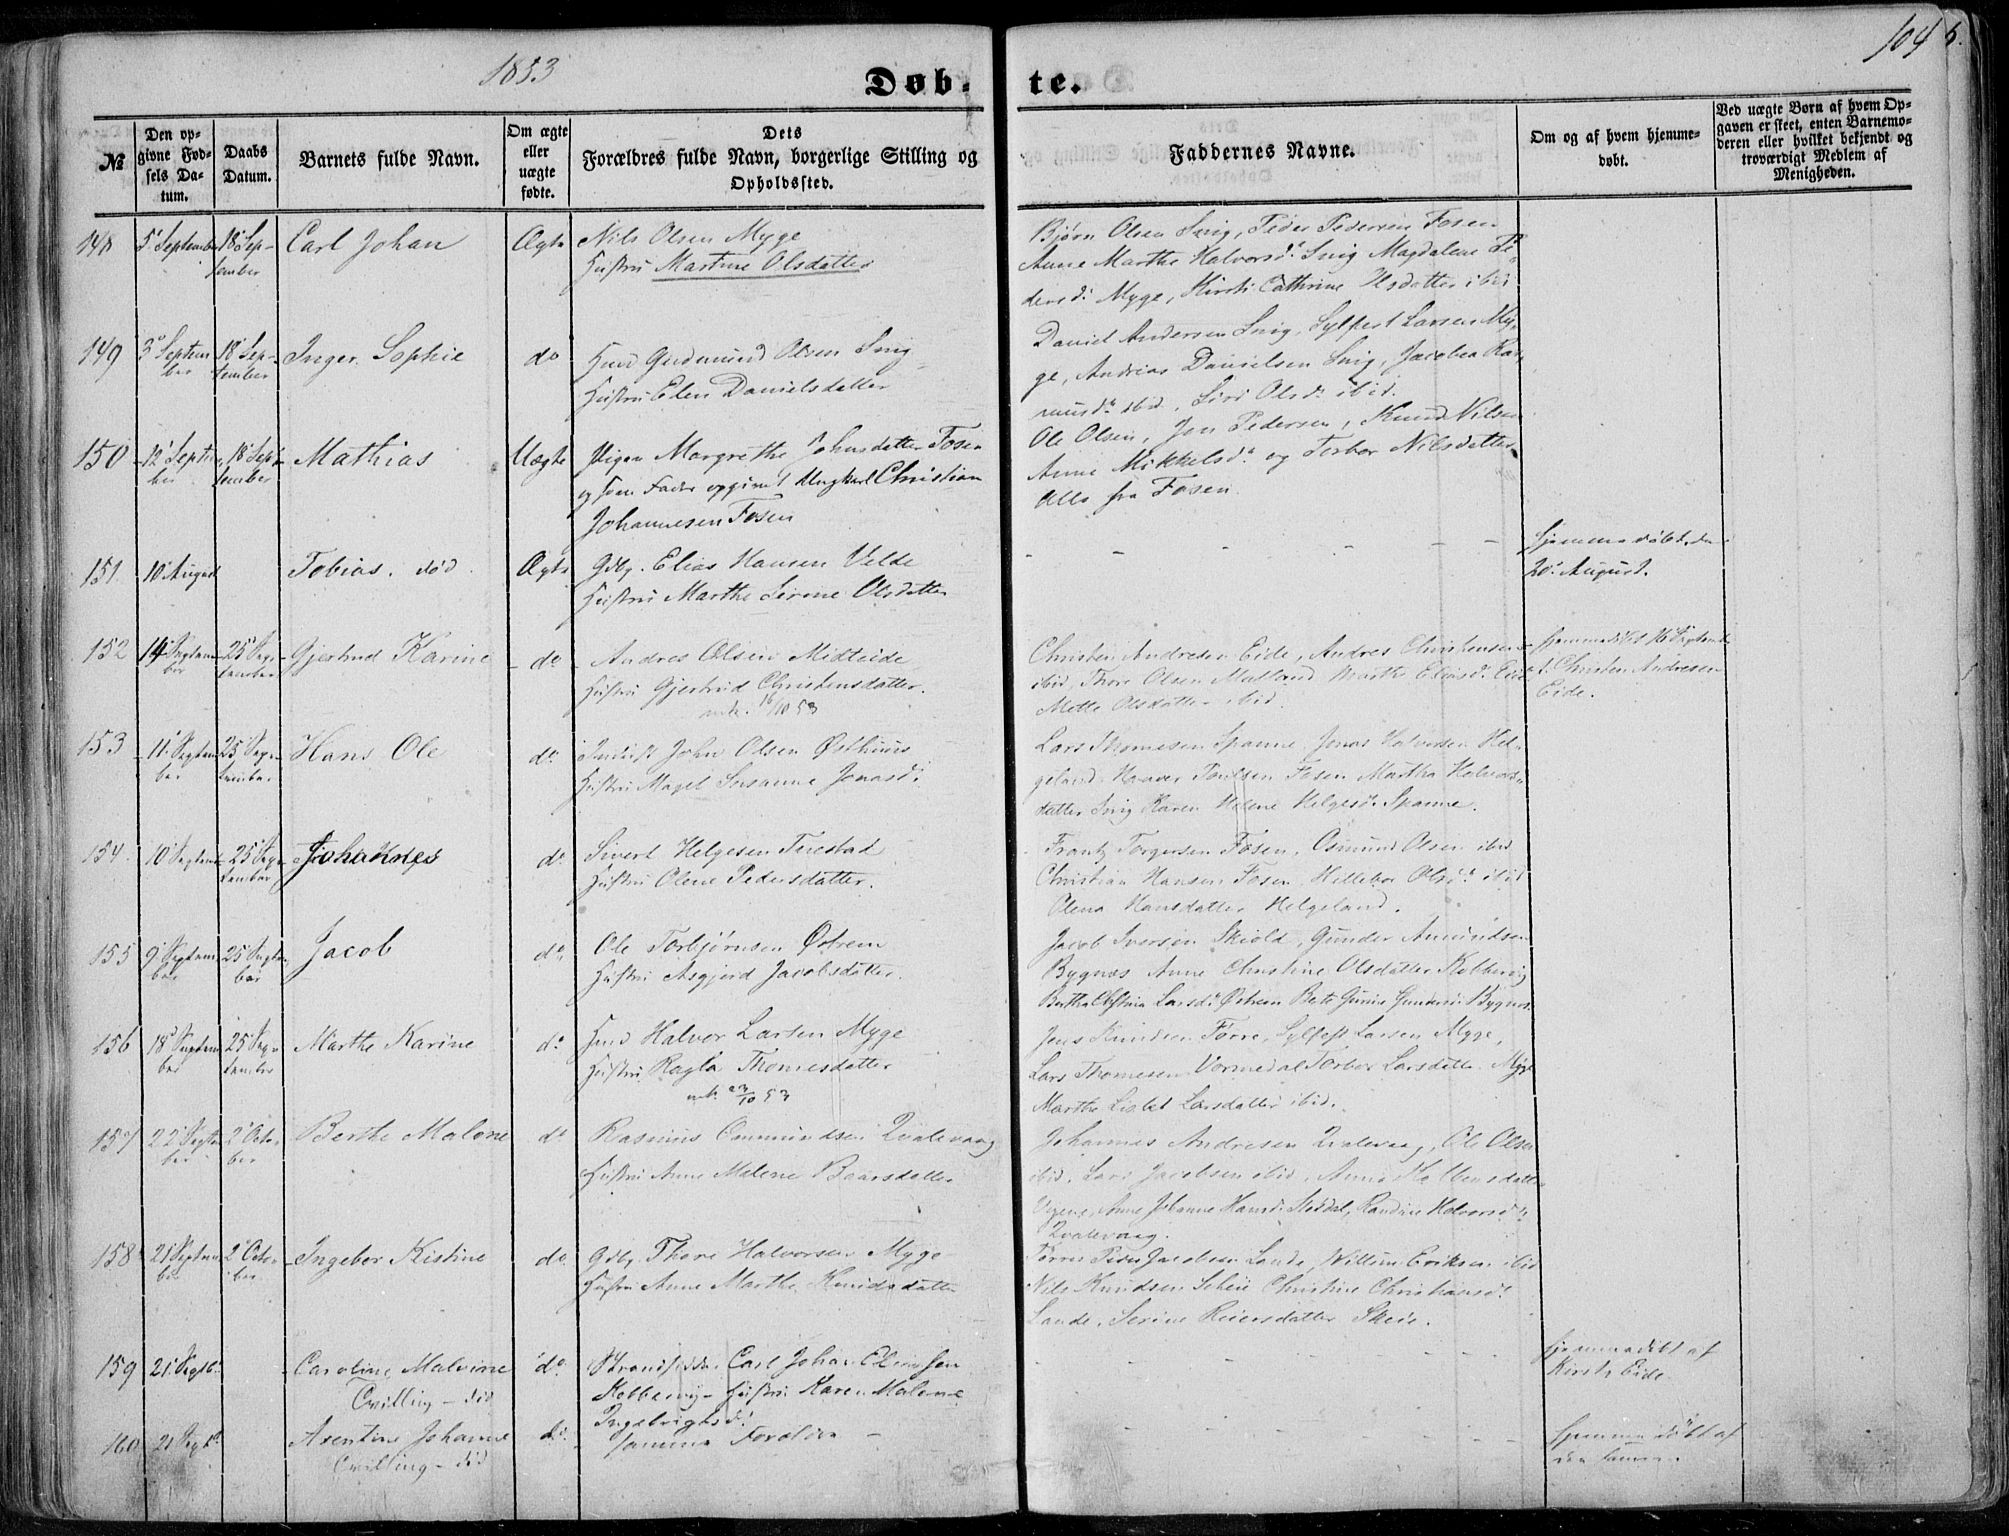 1853
104
Døb-
te.
№
Den op-
givne Fød-
sels Da-
tum.
Daabs
Datum.
Barnets fulde Navn.
Om ægte
eller
uægte
fødte.
Dets
Forældres fulde Navn, borgerlige Stilling og
Opholdssted.
Faddernes Navne.
Om og af hvem hjemme-
døbt.
Ved uægte Børn af hvem Op-
gaven er skeet, enten Barnemo-
deren eller hvilket bekjendt og
troværdigt Medlem af
Menigheden.
148
5' September
18' Sep-
tember
Carl Johan
Ægte
Nils Olsen Myge
Hustru Martine Olsdatter
Bjørn Olsen Snig, Peder Pedersen Fosen
Anne Marthe Halvorsd. Snig Magdalene Pe-
dersd. Myge, Kirsti Cathrine Olsdatter ibid
149
3' Septem
ber
18' Sep-
tember
Inger Sophie
do
Husmd Gudmund Olsen Snig
Hustru Elen Danielsdatter
Daniel Andersen Snig, Sylfest Larsen My-
ge, Andreas Danielsen Snig, Jacobea Ras-
musdr ibid, Siri Olsd. ibid.
150
12' Septem
ber
18' Sep-
tember
Mathias
Uægte
Pigen Margrethe Johnsdatter Fosen
og som Fader opgivet Ungkarl Christian
Johannesen Fosen
Ole Olsen, Jon Pedersen, Knud Nilsen
Anne Mikkelsd. og Torbor Nilsdatter
Alle fra Fosen.
151
10' August
Tobias. død.
Ægte
Gdbr. Elias Hansen Velde
Hustru Marthe Serine Olsdatter
hjemmedøbt den
20' August.
152
14' Septem
ber
25' Sep-
tember
Gjertrud Karine
do
Andres Olsen Midteide
Hustru Gjertrud Christensdatter.
16/10 53
Christen Andresen Eide, Andres Christensen
ibid, Thore Olsen Matland Marthe Eliasd. Eide
Mette Olsdatter ibid.
hjemmedøbt 16 Septemb
af Christen Andresen
Eide.
153
11' Septem
ber
25' Sep-
tember
Hans Ole
do
John Olsen Østhuus
Hustru Maget Susanne Jonasd.
Lars Thomesen Spanne, Jonas Halvorsen Hel-
geland, Haaver Poulsen Fosen Martha Halvors-
datter Snig Karen Helene Helgesd. Spanne.
154
10' Septem
25' Sep-
tember
Johannes
do
Sivert Helgesen Tuestad
Hustru Olene Pedersdatter.
Frantz Torgersen Fosen, Osmund Olsen ibid
Christian Hansen Fosen, Hillebor Olsdr ibid
Olena Hansdatter Helgeland.
155
9' Septem
ber
25' Septem
ber
Jacob
do
Ole Torbjørnsen Østrem
Hustru Asgjerd Jacobsdatter.
Jacob Iversen Skiold, Gunder Amundsen
Bygnæs Anne Christine Olsdatter Kobbervig
Bertha Christina Larsd. Østrem Bygnæs.
156
18' Septem
ber
25' Sep-
tember
Marthe Karine
do
Husmd Halvor Larsen Myge
Hustru Ragla Thomesdatter
23/10 53
Jens Knudsen Førre, Sylfest Larsen Myge,
Lars Thomesen Vormedal Torbor Larsdatter Myge
Marthe Lisbet Larsdatter ibid.
157
22' Septem
ber
2' Octo-
ber
Berthe Malene
do
Rasmus Ommundsen Qvalevaag
Hustru Anne Malene Baarsdatter
Johannes Andresen Qvalevaag, Ole Olsen
ibid. Lars Jacobsen ibid, Anna Kolbensdatter
Anne Johanne Hansd. Stoddal, Randine Halvorsd.
Qvalevaag.
158
21' Septem
ber
2' Octo-
ber
Ingebor Kistine
do
Gdbr. Thore Halvorsen Myge
Hustru Anne Marthe Knudsdatter
Peder Jacobsen Lande, Willum Eriksen ibid
Nils Knudsen Scheie Christine Christiansd.
Lande, Serine Reiersdatter Skeie.
159
21' Septb.
Caroline Malvine
Tvilling - død
do
Strandsidder Carl Johan
Kobbervig Hustru Karen Malene
Ingebrigtsd.
hjemmedøbt af
Kirsti Eide.
160
21 Septb
Arentine Johanne
Tvilling - død
do
samme Forældre
hjemmedøbt af
den samme.